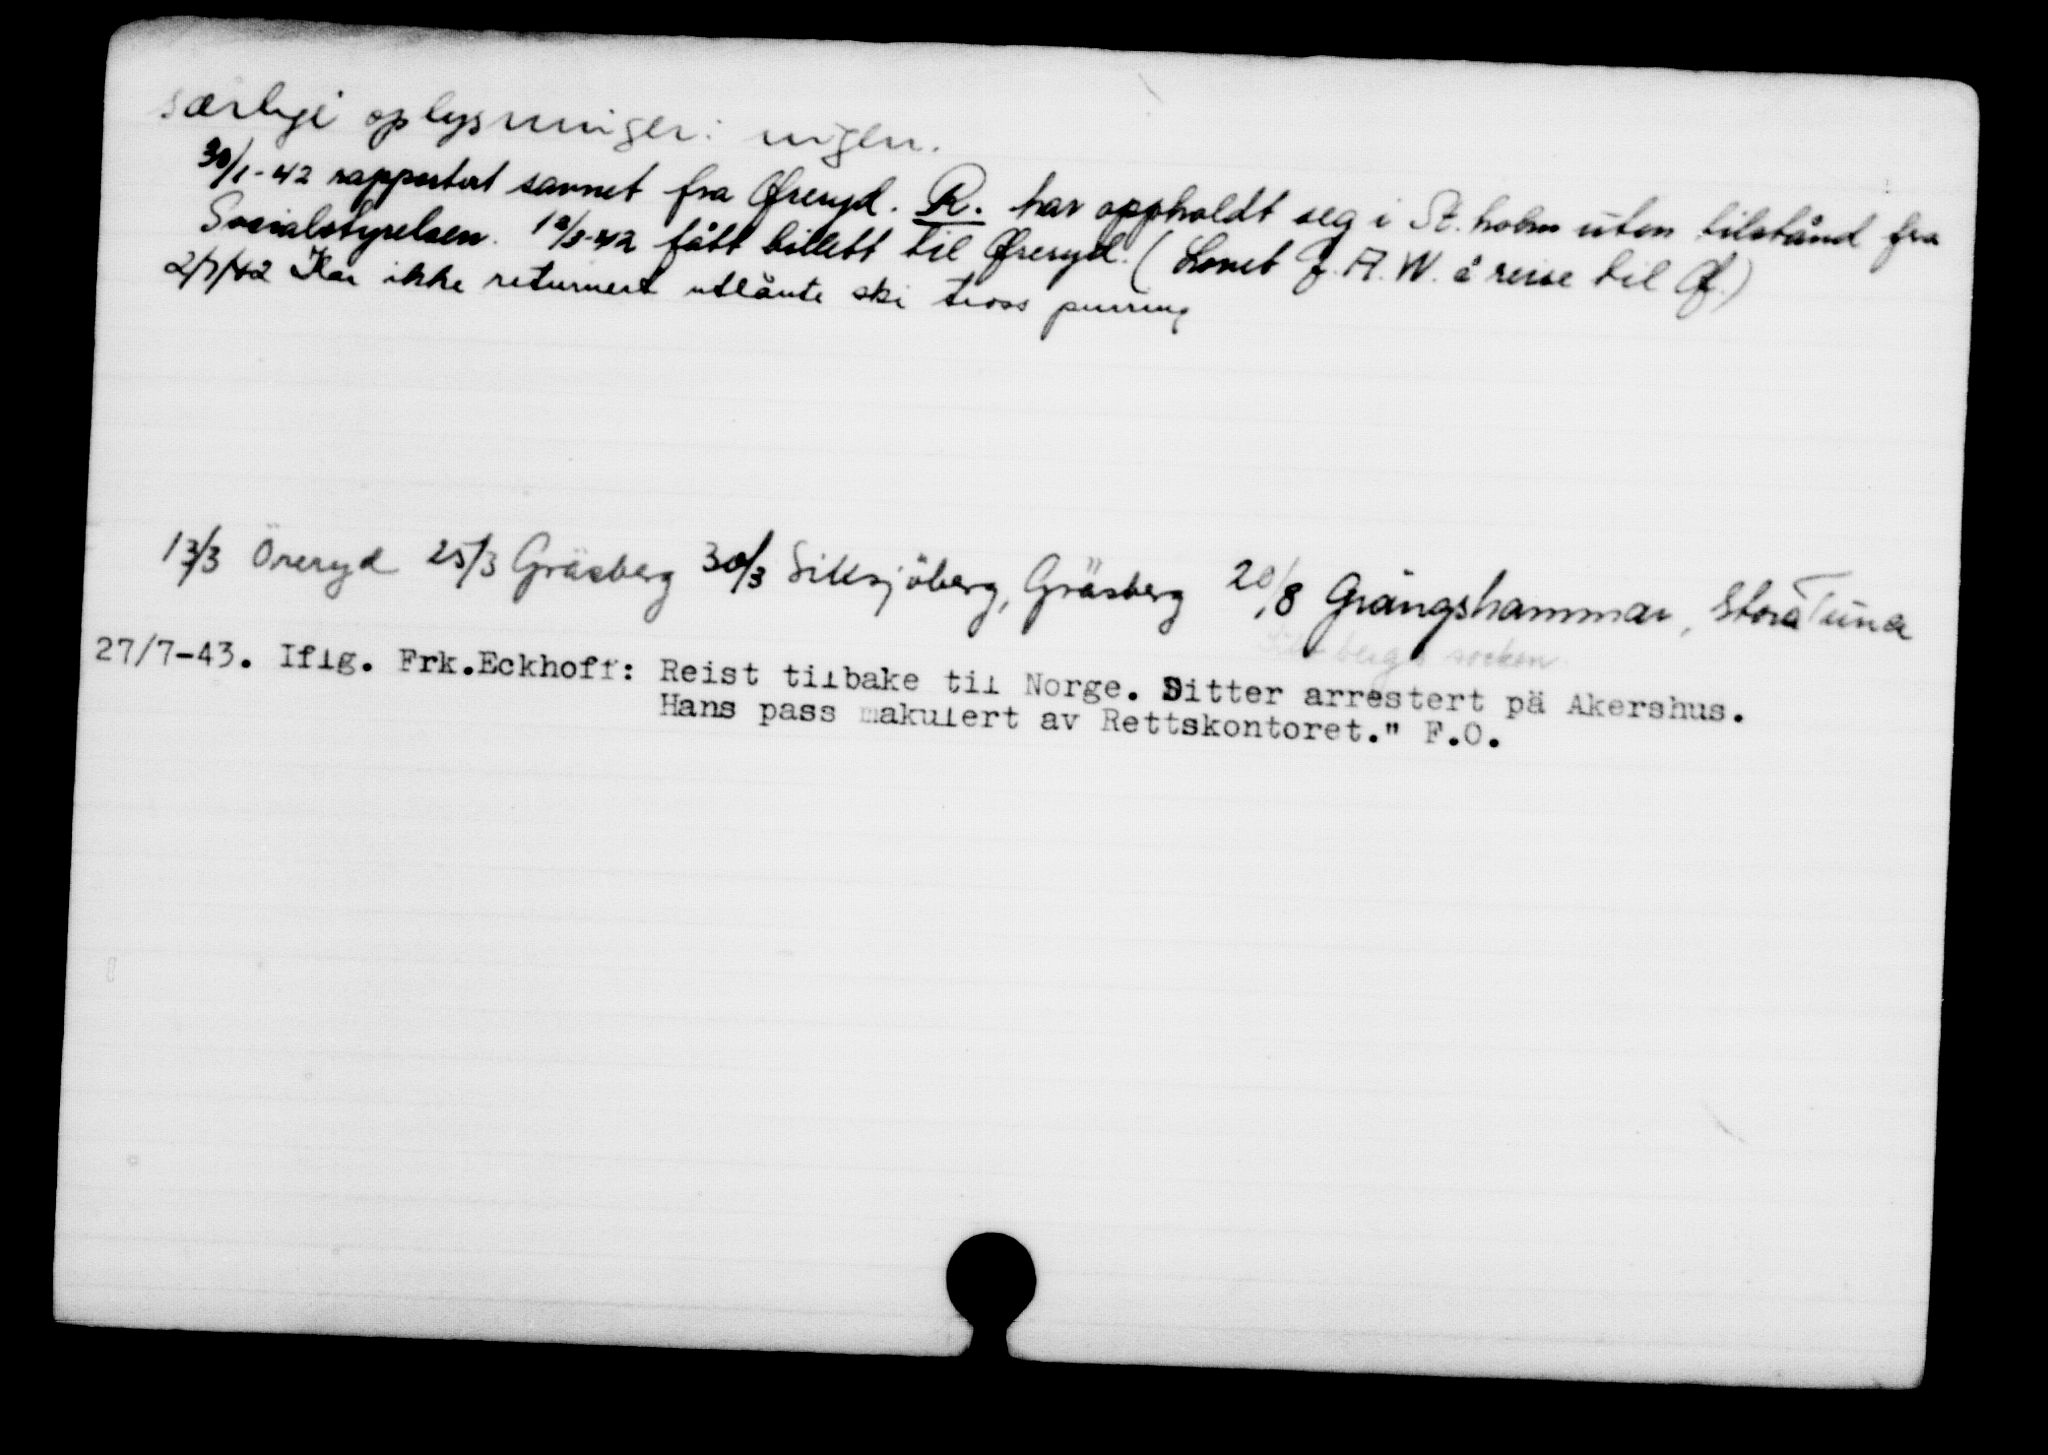 særlige oplysninger: ingen.
30/1-42 rapportert savnet fra Øreryd. R. har oppholdt seg i St.holm uten tilstånd fra
Socialstyrelsen. 12/3-42 fått billett til Øreryd. (Lovet J. A. W. å reise til Ø.)
2/7/42 Har ikke returnert utlånte ski tross purring
13/3 Öreryd 25/3 Gräsberg 30/3 Siksjöberg, Gräsberg 20/8 Grängshammar, Stora Tuna
socken
27/7-43. Iflg. Frk.Eckhoff: Reist tilbake til Norge. Sitter arrestert på Akershus.
Hans pass makulert av Rettskontoret." F.O.